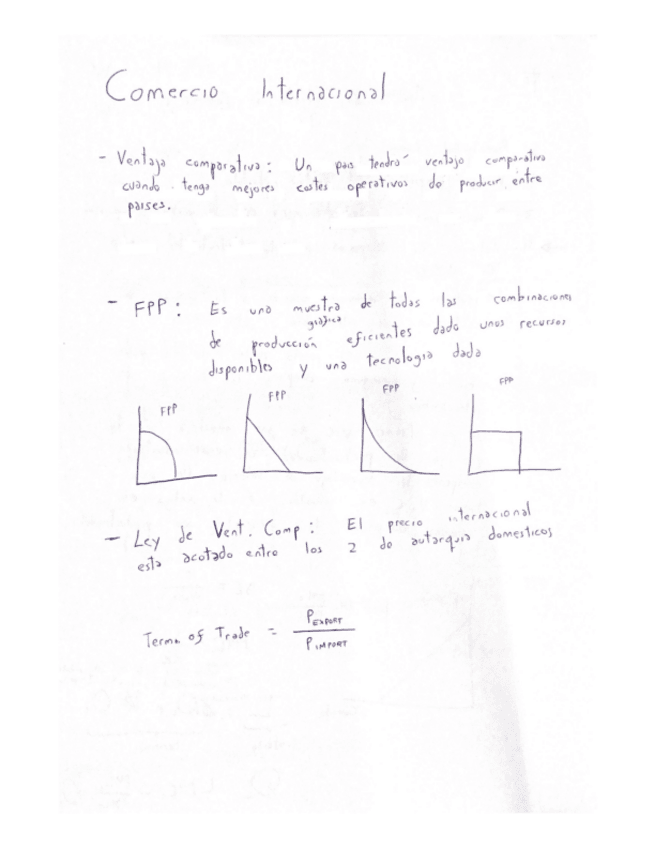 Comercio Internacional
- Ventaja comparativa: Un pais tendrá ventaja comparativa
cuando tenga mejores costes operativos de producir entre
paises.
- FPP: Es una muestra de todas las combinaciones
grafica
de producción eficientes dado unos recursos
disponibles y una tecnologia dada
FPP
FPP
FPP
FPP
- Ley de Vent. Comp: El precio internacional
esta acotado entre los 2 de autarquia domesticos
Terms of Trade = P EXPORT
P IMPORT